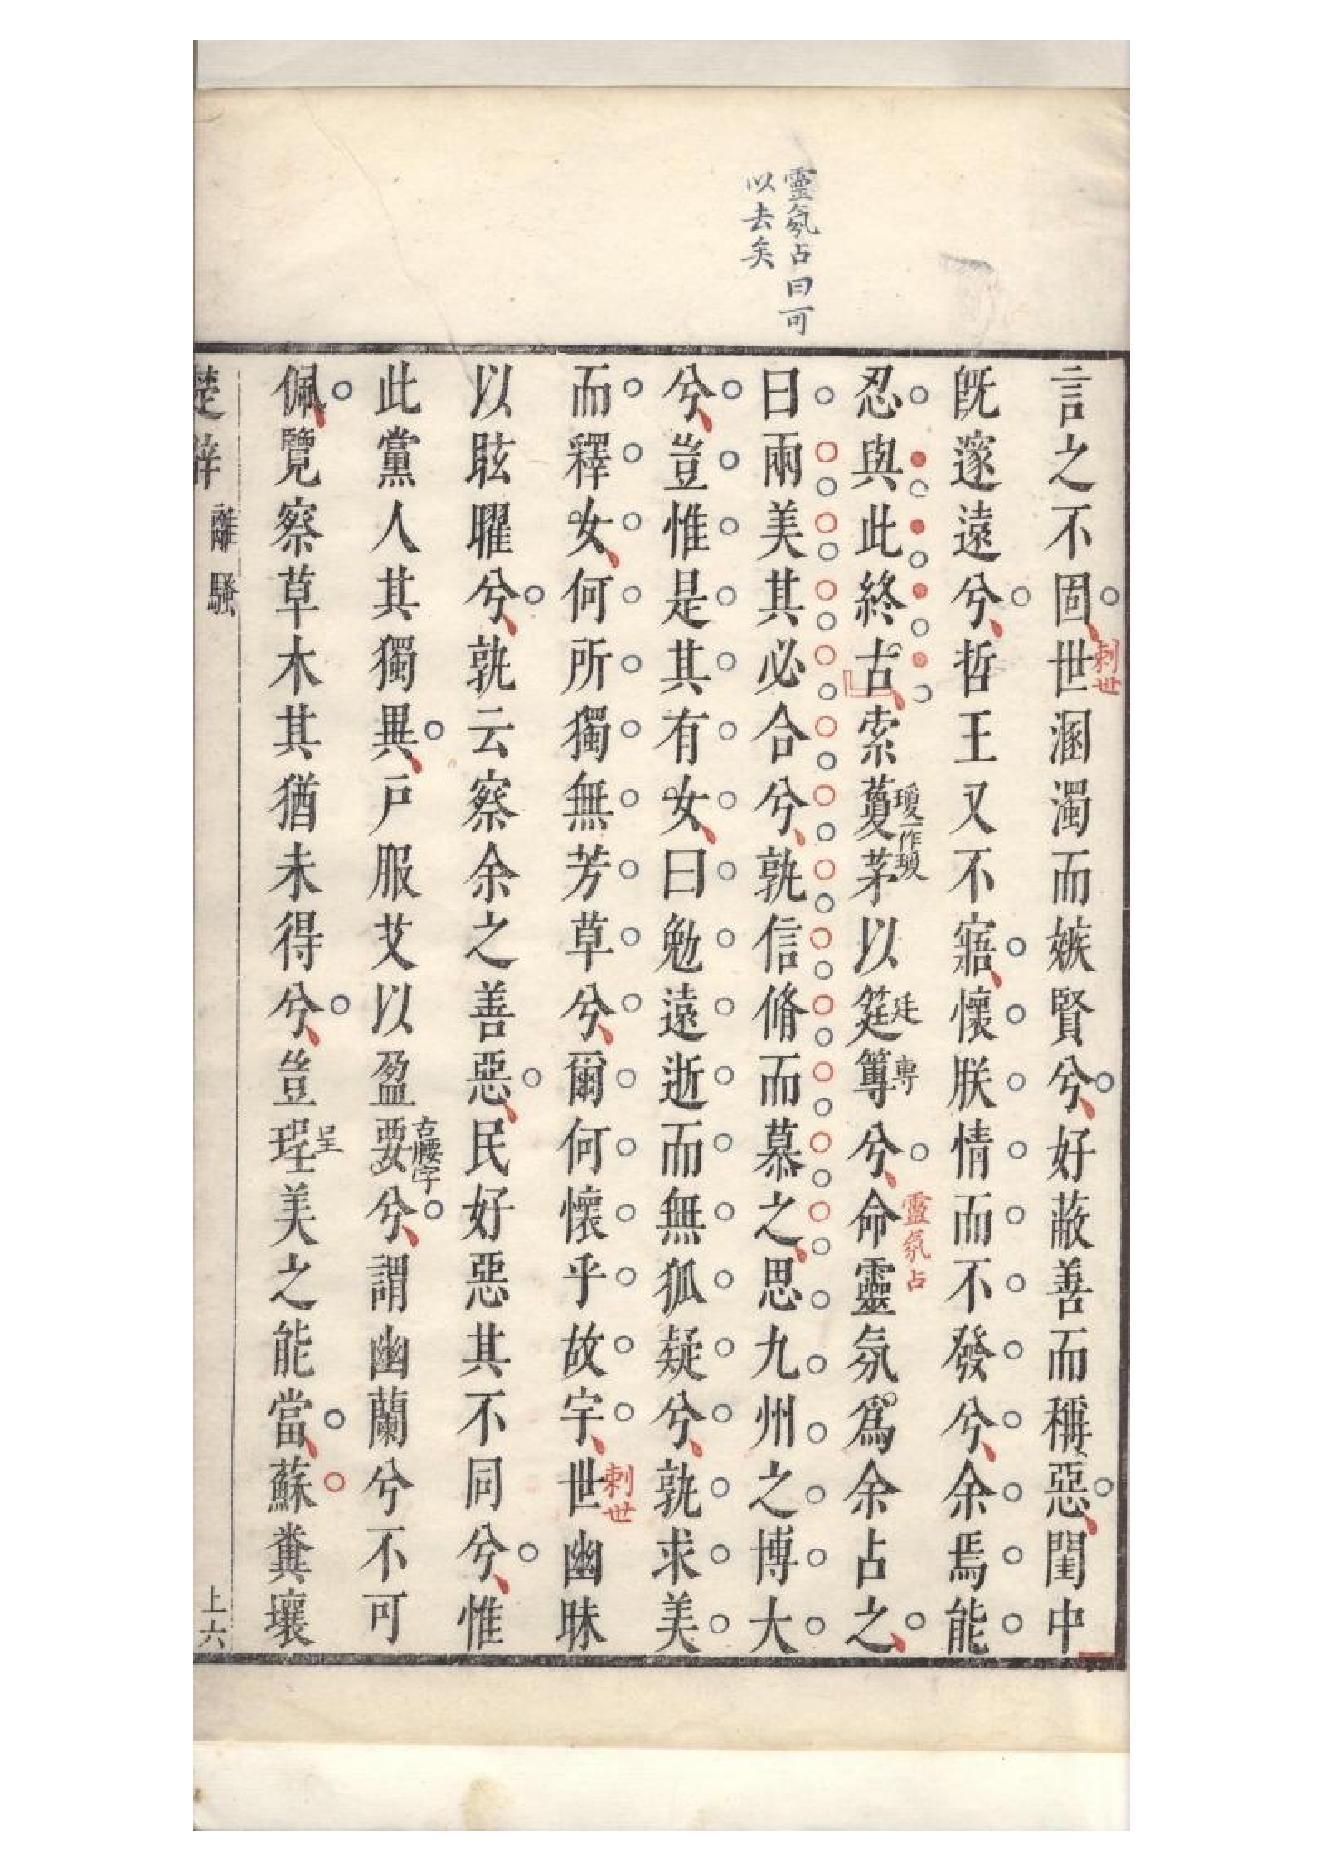 靈氛占曰可
以去矣
言之不固世溷濁而嫉賢兮好蔽善而稱惡閨中
刺世
旣邃遠兮哲王又不寤懷朕情而不發兮余焉能
忍與此終古索藑茅以筳篿兮命靈氛爲余占之
瓊一作瓊
廷
專
靈氛占
曰兩美其必合兮孰信脩而慕之思九州之博大
兮豈惟是其有女曰勉遠逝而無狐疑兮孰求美
而釋女何所獨無芳草兮爾何懷乎故宇世幽昧
刺世
以眩曜兮孰云察余之善惡民好惡其不同兮惟
此黨人其獨異戸服艾以盈要兮謂幽蘭兮不可
古腰字
佩覽察草木其猶未得兮豈珵美之能當蘇糞壤
呈
楚辭
離騷
上六